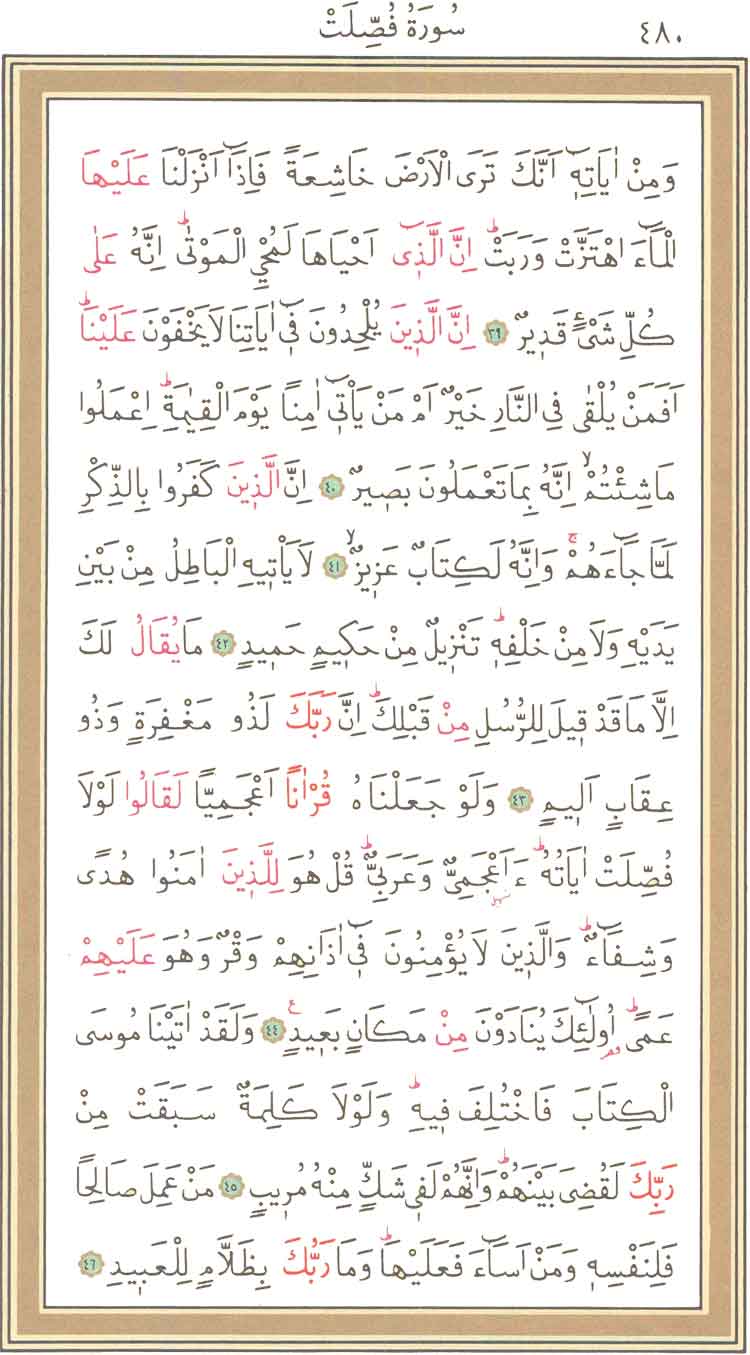 ٤٨٠ سُورَةُ فُصِّلَتْ
وَمِنْ اٰيَاتِهٖٓ اَنَّكَ تَرَى الْاَرْضَ خَاشِعَةً فَاِذَٓا اَنْزَلْنَا عَلَيْهَا
الْمَٓاءَ اهْتَزَّتْ وَرَبَتْۜ اِنَّ الَّذٖٓى اَحْيَاهَا لَمُحْيِ الْمَوْتٰىۜ اِنَّهُ عَلٰى
كُلِّ شَىْءٍ قَدٖيرٌ ﴿٣٩﴾ اِنَّ الَّذٖينَ يُلْحِدُونَ فٖٓى اٰيَاتِنَا لَا يَخْفَوْنَ عَلَيْنَاۜ
اَفَمَنْ يُلْقٰى فِى النَّارِ خَيْرٌ اَمْ مَنْ يَأْتٖٓى اٰمِنًا يَوْمَ الْقِيٰمَةِۜ اِعْمَلُوا
مَا شِئْتُمْۙ اِنَّهُ بِمَا تَعْمَلُونَ بَصٖيرٌ ﴿٤٠﴾ اِنَّ الَّذٖينَ كَفَرُوا بِالذِّكْرِ
لَمَّا جَٓاءَهُمْۚ وَاِنَّهُ لَكِتَابٌ عَزٖيزٌۙ ﴿٤١﴾ لَا يَأْتٖيهِ الْبَاطِلُ مِنْ بَيْنِ
يَدَيْهِ وَلَا مِنْ خَلْفِهٖۜ تَنْزٖيلٌ مِنْ حَكٖيمٍ حَمٖيدٍ ﴿٤٢﴾ مَا يُقَالُ لَكَ
اِلَّا مَا قَدْ قٖيلَ لِلرُّسُلِ مِنْ قَبْلِكَۜ اِنَّ رَبَّكَ لَذُو مَغْفِرَةٍ وَذُو
عِقَابٍ اَلٖيمٍ ﴿٤٣﴾ وَلَوْ جَعَلْنَاهُ قُرْاٰنًا اَعْجَمِيًّا لَقَالُوا لَوْلَا
فُصِّلَتْ اٰيَاتُهُۜ ءَاَعْجَمِىٌّ وَعَرَبِىٌّۜ قُلْ هُوَ لِلَّذٖينَ اٰمَنُوا هُدًى
وَشِفَٓاءٌۜ وَالَّذٖينَ لَا يُؤْمِنُونَ فٖٓى اٰذَانِهِمْ وَقْرٌ وَهُوَ عَلَيْهِمْ
عَمًىۜ اُولٰٓئِكَ يُنَادَوْنَ مِنْ مَكَانٍ بَعٖيدٍ ﴿٤٤﴾ وَلَقَدْ اٰتَيْنَا مُوسَى
الْكِتَابَ فَاخْتُلِفَ فٖيهِۜ وَلَوْلَا كَلِمَةٌ سَبَقَتْ مِنْ
رَبِّكَ لَقُضِىَ بَيْنَهُمْۜ وَاِنَّهُمْ لَفٖى شَكٍّ مِنْهُ مُرٖيبٍ ﴿٤٥﴾ مَنْ عَمِلَ صَالِحًا
فَلِنَفْسِهٖ وَمَنْ اَسَٓاءَ فَعَلَيْهَاۜ وَمَا رَبُّكَ بِظَلَّامٍ لِلْعَبٖيدِ ﴿٤٦﴾